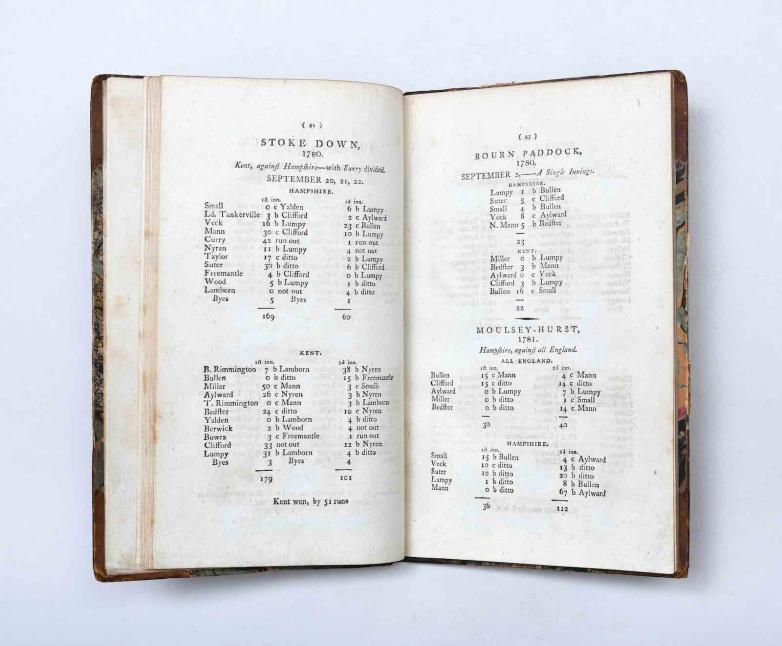 ( 42 )
STOKE DOWN,
1780.
Kent, againſt Hampſhire—with Surry divided.
SEPTEMBER 20, 21, 22.
HAMPSHIRE.
1ſt inn. 2d inn.
Small 0 c Yalden 6 b Lumpy
Ld. Tankerville 3 b Clifford 2 c Aylward
Veck 16 b Lumpy 23 c Bullen
Mann 30 c Clifford 10 b Lumpy
Curry 42 run out 1 run out
Nyren 11 b Lumpy 4 not out
Taylor 17 c ditto 2 b Lumpy
Suter 36 b ditto 6 b Clifford
Freemantle 4 b Clifford 0 b Lumpy
Wood 5 b Lumpy 1 b ditto
Lamborn 0 not out 4 b ditto
Byes 5 Byes 1
169 60
KENT.
1ſt inn. 2d inn.
B. Rimmington 7 b Lamborn 38 b Nyren
Bullen 0 b ditto 15 b Freemantle
Miller 50 c Mann 3 c Small
Aylward 26 c Nyren 3 b Nyren
T. Rimmington 0 c Mann 3 b Lamborn
Bedſter 24 c ditto 10 c Nyren
Yalden 0 b Lamborn 4 b ditto
Berwick 2 b Wood 4 not out
Bowra 3 c Freemantle 1 run out
Clifford 33 not out 12 b Nyren
Lumpy 31 b Lamborn 4 b ditto
Byes 3 Byes 4
179 101
Kent won, by 51 runs
( 43 )
BOURN PADDOCK,
1780.
SEPTEMBER 2.—A Single Innings.
HAMPSHIRE.
Lumpy 1 b Bullen
Suter 5 c Clifford
Small 4 b Bullen
Veck 8 c Aylward
N. Mann 5 b Bedſter
23
KENT.
Miller 0 b Lumpy
Bedſter 3 b Mann
Aylward 0 c Veck
Clifford 3 b Lumpy
Bullen 16 c Small
22
MOULSEY-HURST,
1781.
Hampſhire, againſt all England.
ALL ENGLAND.
1ſt inn. 2d inn.
Bullen 15 c Mann 4 c Mann
Clifford 15 c ditto 14 c ditto
Aylward 0 b Lumpy 7 b Lumpy
Miller 0 b ditto 1 c Small
Bedſter 0 b ditto 14 c Mann
30 40
HAMPSHIRE.
1ſt inn. 2d inn.
Small 15 b Bullen 4 c Aylward
Veck 10 c ditto 13 b ditto
Suter 10 b ditto 20 b ditto
Lumpy 1 b ditto 8 b Bullen
Mann 0 b ditto 67 b Aylward
36 112